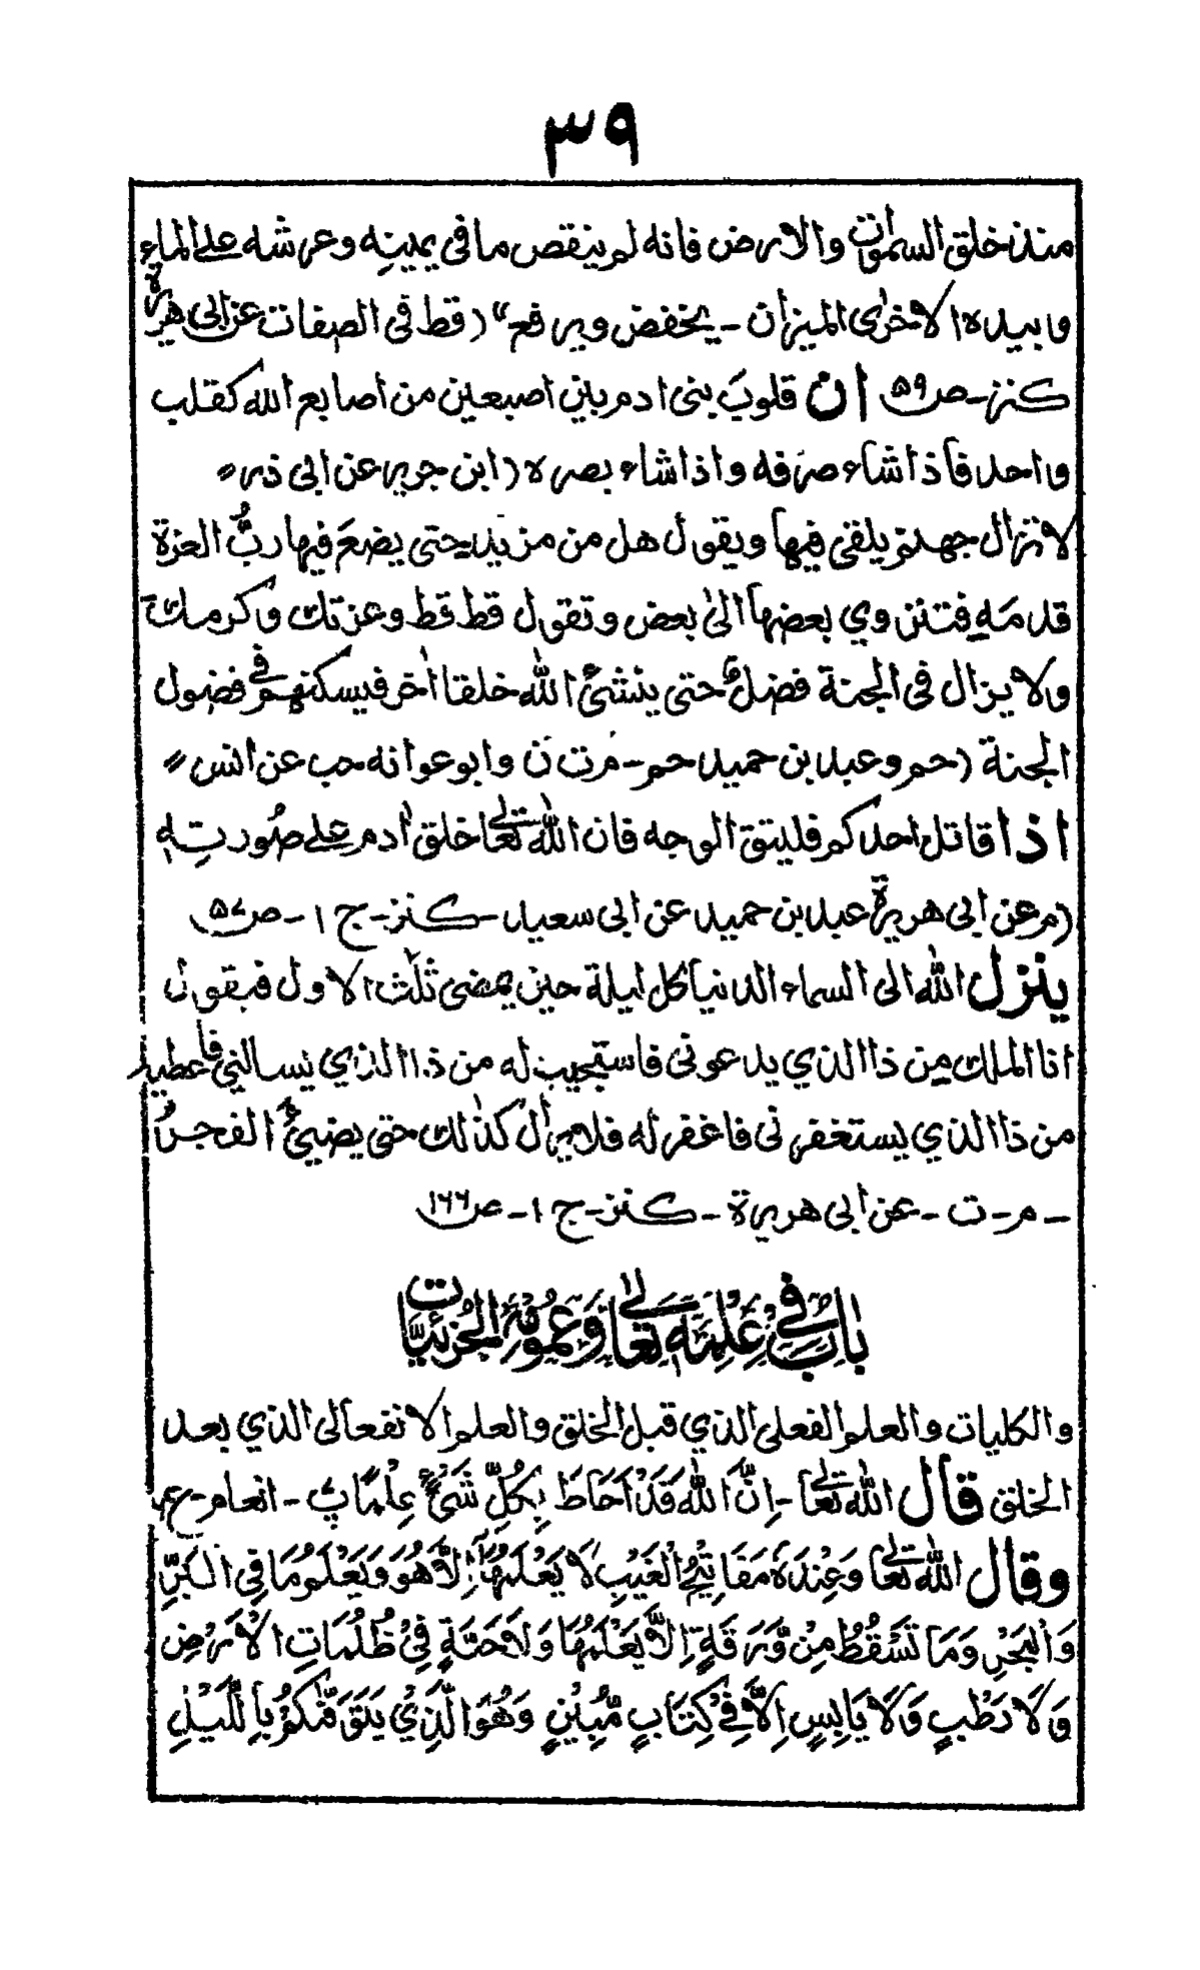 ۳۹
منذ خلق السمٰوٰت والارض فانه لم ينقص ما في يمينه وعرشه على الماء
وبيده الاخرى الميزان ـ يخفض ويرفع" (قط في الصفات عن ابى هريرة
كنز ـ ص ۵۹ ان قلوبَ بنى ادم بين اصبعين من اصابع الله كقلب
واحد فاذا شاء صرفه واذا شاء بصره (ابن جرير عن ابى ذر"
لا تزال جهنم يلقى فيها ويقول هل من مزيد حتى يضعَ فيها ربُّ العزة
قدمَه فتنزوي بعضها الىٰ بعض وتقول قط قط وعزتك وكرمك
ولا يزال فى الجنة فضلٌ حتى ينشئ الله خلقا اٰخر فيسكنهم في فضول
الجنة (حم وعبد بن حميد حم ـ م ت ن وابو عوانه حب عن انس"
اذا قاتل احدكم فليتق الوجه فان الله تعالى خلق اٰدم على صُورتِه
(م عن ابى هريرة عبد بن حميد عن ابى سعيد ـ كنز ـ ج ۱ ـ ص ۵۷
ينزل الله الى السماء الدنيا كل ليلة حين يمضى ثلث الاول فيقول
انا الملك مِن ذا الذي يدعونى فاستجيب له من ذا الذي يسالني فاعطيه
من ذا الذي يستغفرنى فاغفر له فلا يزال كذٰلك حتى يضيئ الفجر
ـ م ـ ت ـ عن ابى هريرة ـ كنز ـ ج ۱ ـ ص ۱۶۶
بابٌ فِي عِلْمِهٖ تعالٰى وَعُمُومِهِ الجُزئيّات
والكليات والعلم الفعلى الذي قبل الخلق والعلم الانفعالى الذي بعد
الخلق قال الله تعالى ـ اِنَّ اللهَ قَدْ اَحَاطَ بِكُلِّ شَئٍ عِلْمًا پ ۷ ـ انعام ـ ع
وقال الله تعالى وَعِنْدَهٗ مَفَاتِيْحُ الْغَيْبِ لَا يَعْلَمُهَا اِلَّا هُوَ وَيَعْلَمُ مَا فِى الْبَرِّ
وَالْبَحْرِ وَمَا تَسْقُطُ مِنْ وَّرَقَةٍ اِلَّا يَعْلَمُهَا وَلَا حَبَّةٍ فِيْ ظُلُمَاتِ الْاَرْضِ
وَلَا رَطْبٍ وَلَا يَابِسٍ اِلَّا فِيْ كِتَابٍ مُّبِيْنٍ وَهُوَ الَّذِيْ يَتَوَفّٰكُمْ بِاللَّيْلِ